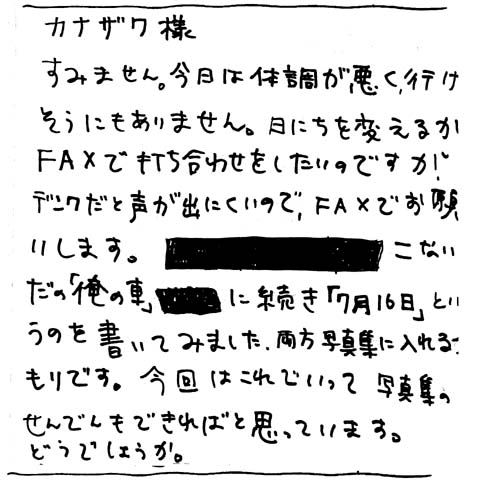 カナザワ様
すみません。今日は体調が悪く、行け
そうにもありません。日にちを変えるか
FAXで打ち合わせをしたいのですが
デンワだと声が出にくいので、FAXでお願
いします。 こない
だの「俺の車」 に続き「7月16日」とい
うのを書いてみました、両方写真集に入れるつ
もりです。今回はこれでいって写真集の
せんでんもできればと思っています。
どうでしょうか。